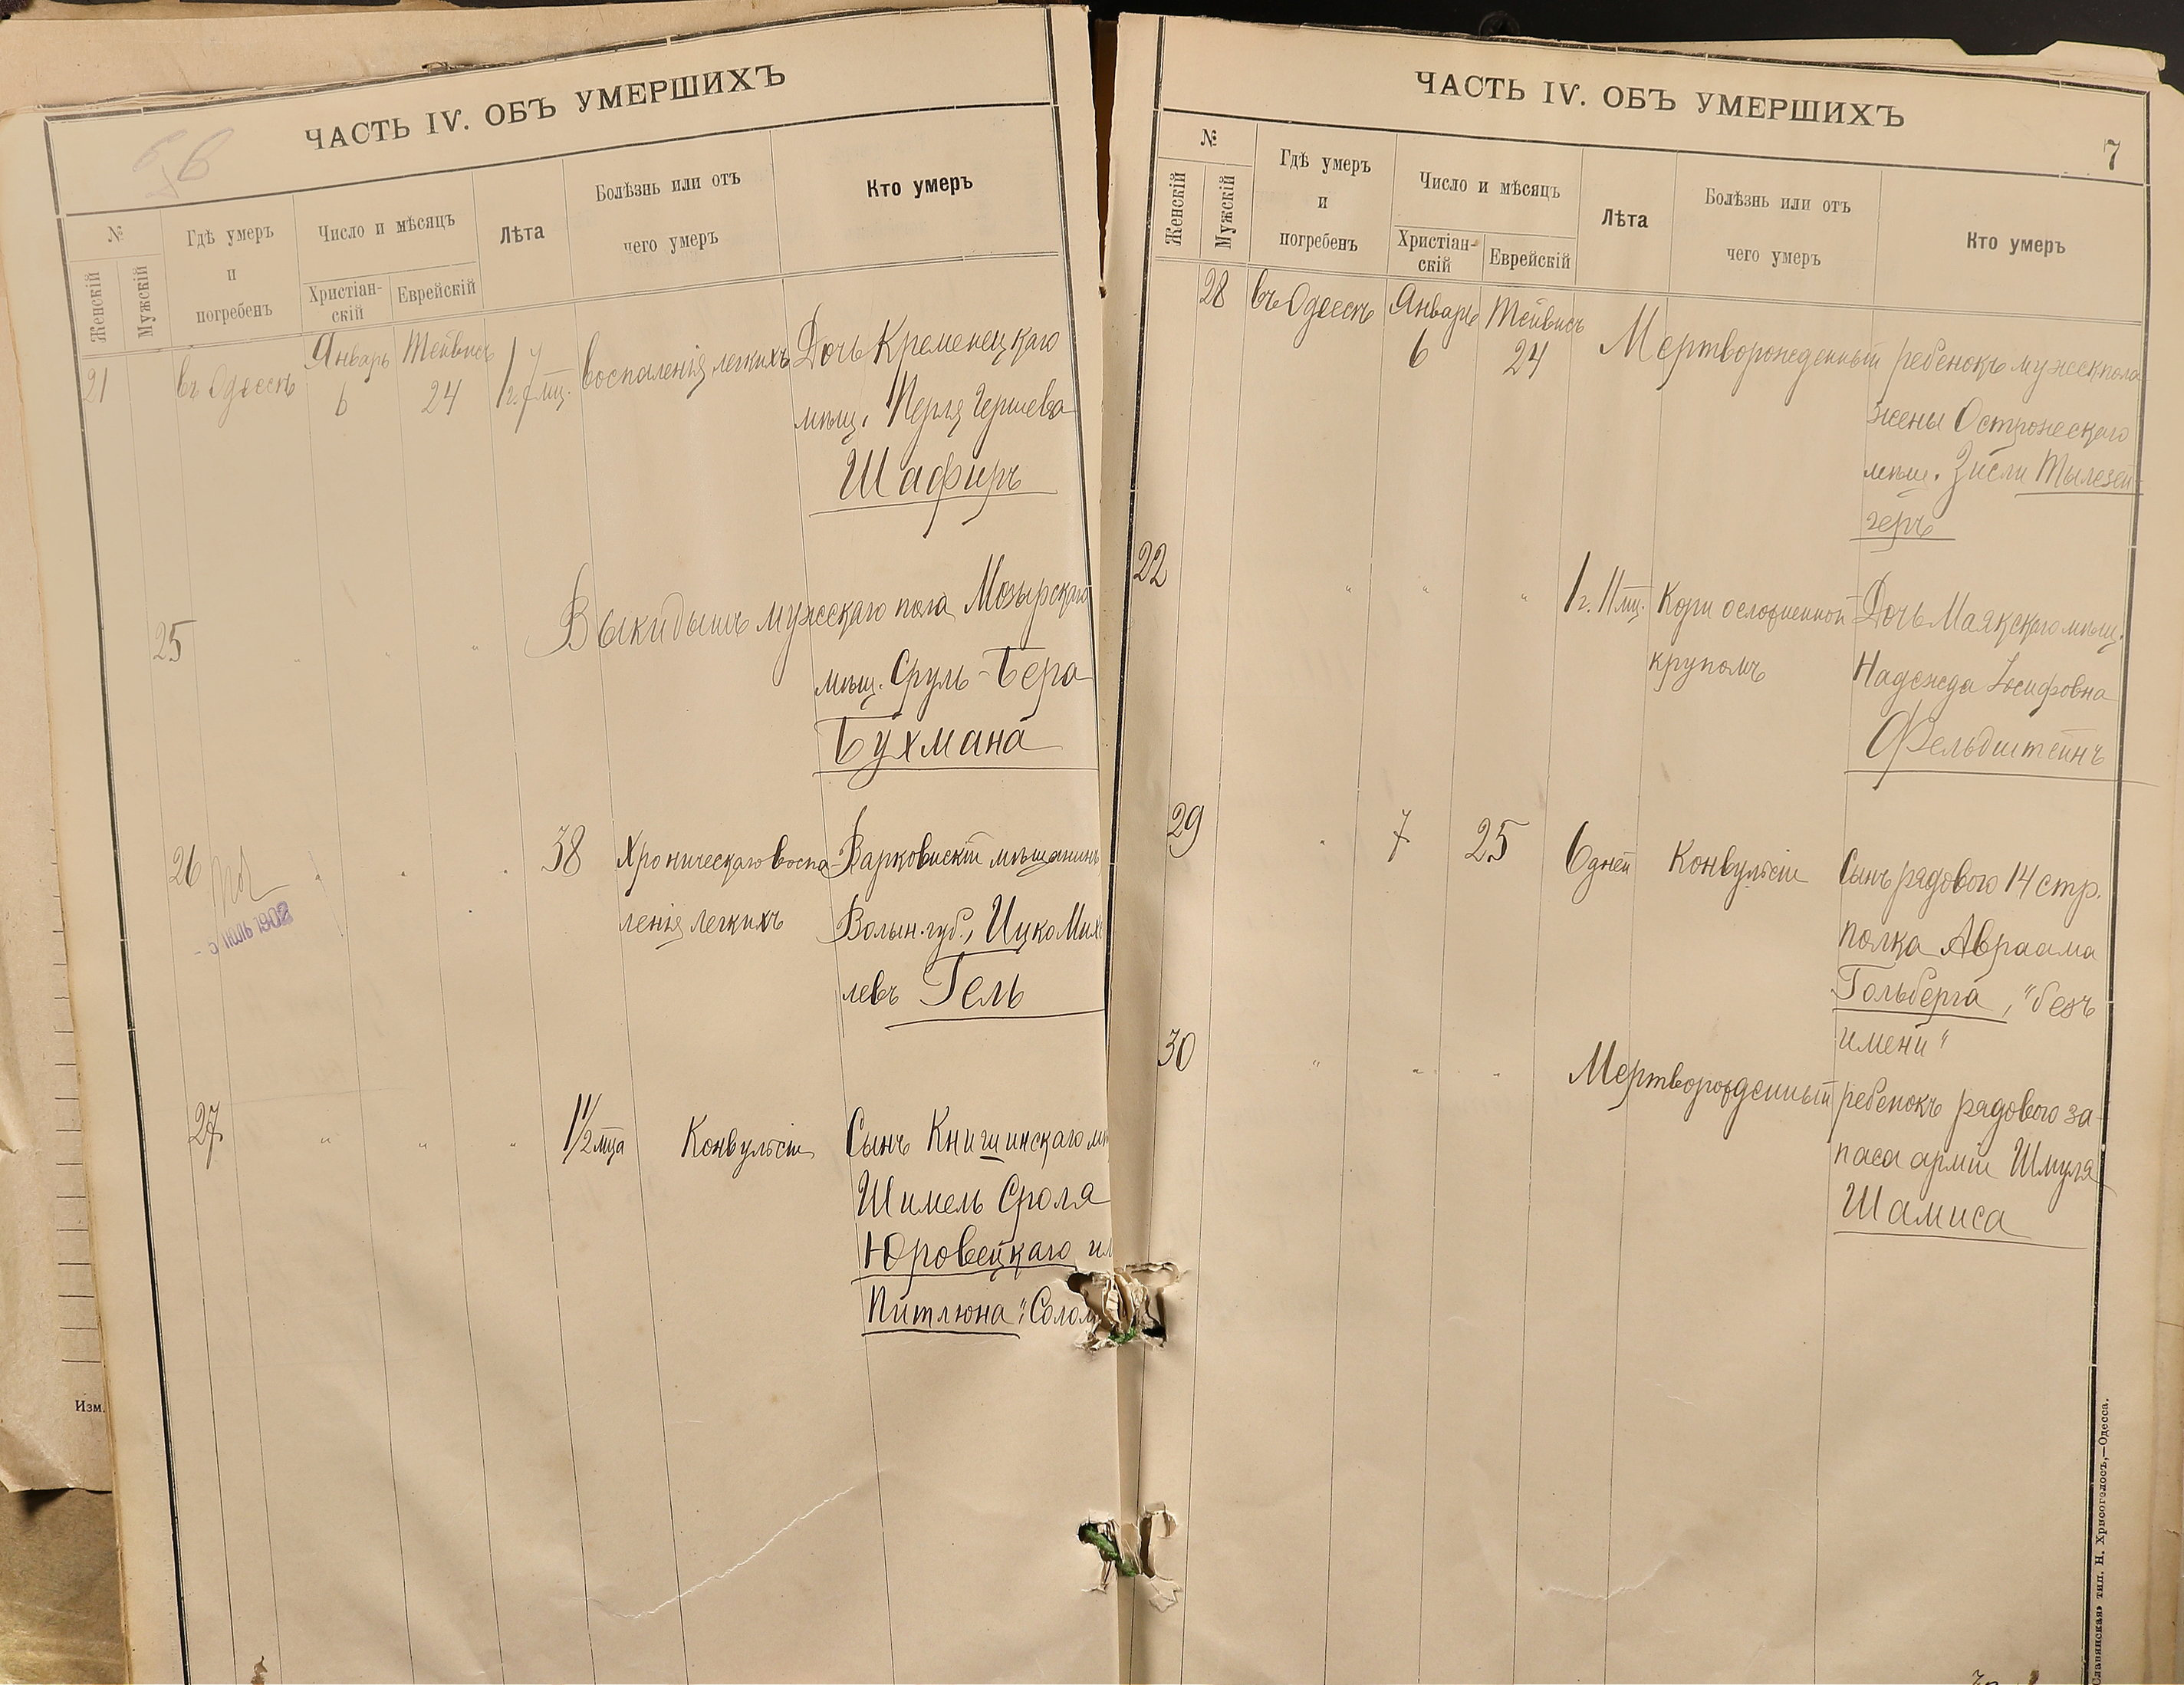 ЧАСТЬ IV. ОБЪ УМЕРШИХЪ
№
Женскій
Мужскій
Гдѣ умеръ
и
погребенъ
Число и мѣсяцъ
Христіан-
скій
Еврейскій
Лѣта
Болѣзнь или отъ
чего умеръ
Кто умеръ
21 въ Одессѣ Январь 6 Тейвисъ 24 1 г. мц. воспаленія легкихъ Дочь Кременецкаго
мѣщ. Перля Гершева
Шафиръ
25 " " " Выкидышъ мужескаго пола Мозырскаго
мѣщ. Сруль-Бера
Бухмана
26 " " " 38 Хроническаго воспа- Варковискій мѣщанинъ
ленія легкихъ Волын. губ., Ицко Мих
левъ Гель
- 5 ІЮЛЬ 1902
27 " " " 1 1/2 мца Конвульсіи Сынъ Книшинскаго мѣ
Шимель Сроля
Юровецкаго
Питлюна "Солом
Изм.
ЧАСТЬ IV. ОБЪ УМЕРШИХЪ
7
№
Женскій
Мужскій
Гдѣ умеръ
и
погребенъ
Число и мѣсяцъ
Христіан-
скій
Еврейскій
Лѣта
Болѣзнь или отъ
чего умеръ
Кто умеръ
28 въ Одессѣ Январь 6 Тейвисъ 24 Мертворожденный ребенокъ мужск пола
жены Острожскаго
мѣщ. Зисли Тылезей-
геръ
22 " " " 1 г. 11 мц. Кори осложненной Дочь Маякскаго мѣщ.
крупомъ Надежда Іосифовна
Фельдштейнъ
29 " 7 25 6 дней Конвульсіи Сынъ рядового 14 стр.
полка Авраама
Гольберга, "безъ
имени"
30 " " " Мертворожденный ребенокъ рядового за-
паса арміи Шмуля
Шамиса
Славянская» тип. Н. Хрисогелосъ,—Одесса.